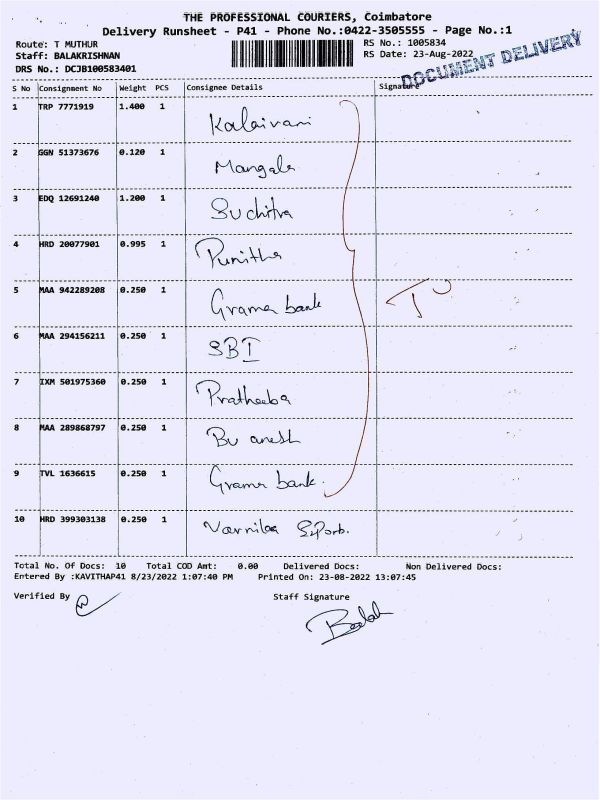 THE PROFESSIONAL COURIERS, Coimbatore
Delivery Runsheet - P41 - Phone No.:0422-3505555 - Page No.:1
Route: T MUTHUR
RS No.: 1005834
Staff: BALAKRISHNAN
RS Date: 23-Aug-2022
DRS No.: DCJB100583401
DOCUMENT DELIVERY
S No Consignment No Weight PCS Consignee Details Signature
1 TRP 7771919 1.400 1 Kalaivani
2 GGN 51373676 0.120 1 Mangala
3 EDQ 12691240 1.200 1 Suchitra
4 HRD 20077901 0.995 1 Punitha
5 MAA 942289208 0.250 1 Grama bank
6 MAA 294156211 0.250 1 SBI
7 IXM 501975360 0.250 1 Pratheeba
8 MAA 289868797 0.250 1 Buvanesh
9 TVL 1636615 0.250 1 Grama bank.
10 HRD 399303138 0.250 1
Total No. Of Docs: 10 Total COD Amt: 0.00 Delivered Docs: Non Delivered Docs:
Entered By :KAVITHAP41 8/23/2022 1:07:40 PM Printed On: 23-08-2022 13:07:45
Verified By Staff Signature